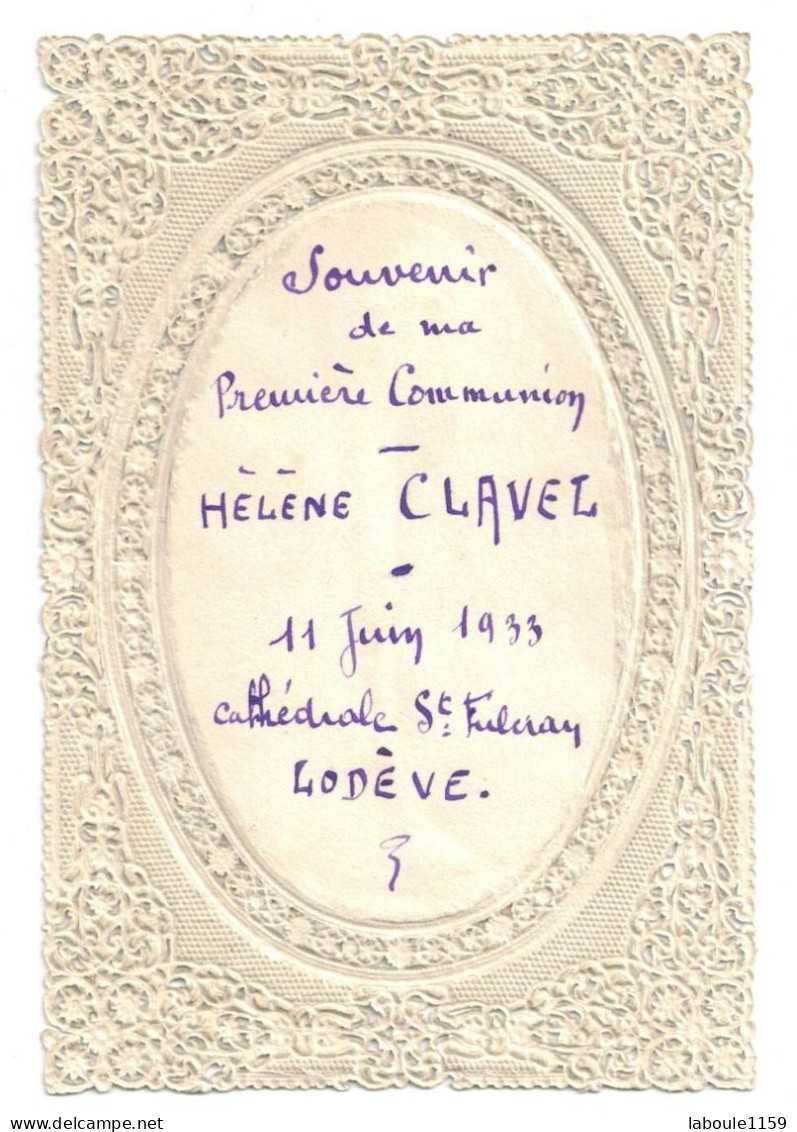 Souvenir
de ma
Première Communion
—
HÉLÈNE CLAVEL
-
11 Juin 1933
Cathédrale St. Fulcran
LODÈVE.
delcampe.net
laboule1159